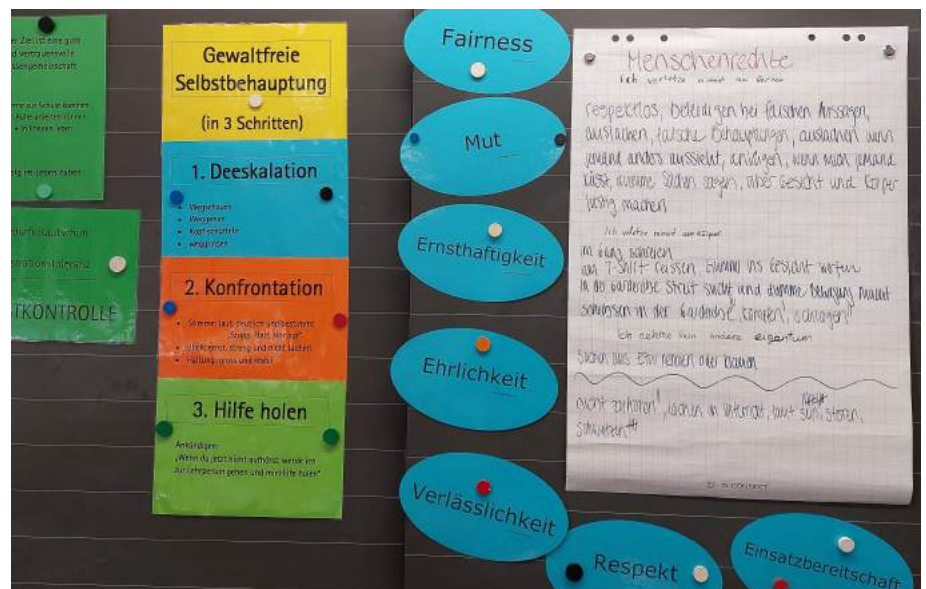 er Ziel ist eine gute
nd vertrauensvolle
ssengemeinschaft
in Frieden leben
olg im Leben haben
strationstoleranz
TKONTROLLE
Gewaltfreie
Selbstbehauptung
(in 3 Schritten)
1. Deeskalation
Wegschauen
Weggehen
Kopf schütteln
2. Konfrontation
Stimme: laut, deutlich und bestimmt
„Stopp, Halt, Hör auf“
Blick: ernst, streng und nicht lachen
Haltung: gross und
3. Hilfe holen
Ankündigen:
„Wenn du jetzt nicht aufhörst, werde ich
zur Lehrperson gehen und mir Hilfe holen“
Fairness
Mut
Ernsthaftigkeit
Ehrlichkeit
Verlässlichkeit
Respekt
Einsatzbereitschaft
Menschenrechte
Ich verletze niemand im
respektlos, beleidigen bei falschen Aussagen,
auslachen, falsche Behauptungen, auslachen wenn
jemand anders aussieht, wenn mich jemand
küsst, dumme Sachen sagen, über Gesicht und Körper
lustig machen
Ich verletze niemand am Körper
im Gang schreien
am T-Shirt reissen, Gummi ins Gesicht werfen
in der Garderobe Streit sucht und dumme Bewegung macht
schubsen in der Garderobe, kämpfen, schlagen
Ich nehme kein andere eigentum
Sachen aus Etui nehmen oder klauen
nicht zuhören, lachen im Unterricht, laut sein, stören,
schwatzen